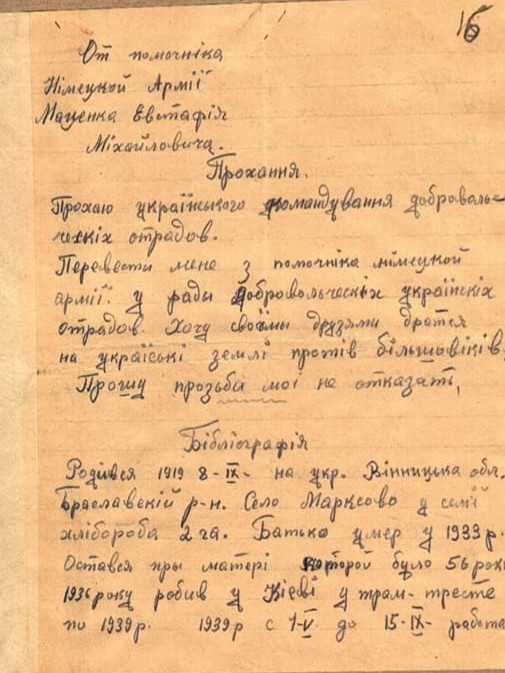 16
От помочніка
Німецкой Армії
Маценка Евстафія
Міхайловича.
Прохання.
Прохаю українського командування доброволь-
ческіх отрадов.
Перевести мене з помочніка німецкой
армії у ряды добровольческіх українскіх
отрадов. Хочу своїмы друзямы дратся
на україські землі протів більшовіків.
Прошу прозьби мої не отказать.
Бібліографія
Родівся 1919 8-IX- на укр. Вінницька обл.
Браславскій р-н. Село Марксово у семї
хлібороба 2 га. Батько умер у 1933 р.
Остався пры матері которой було 56 рокі
1936 року робив у Кієві у трам-тресте
по 1939 р. 1939 р с 1-V до 15-IX- работа